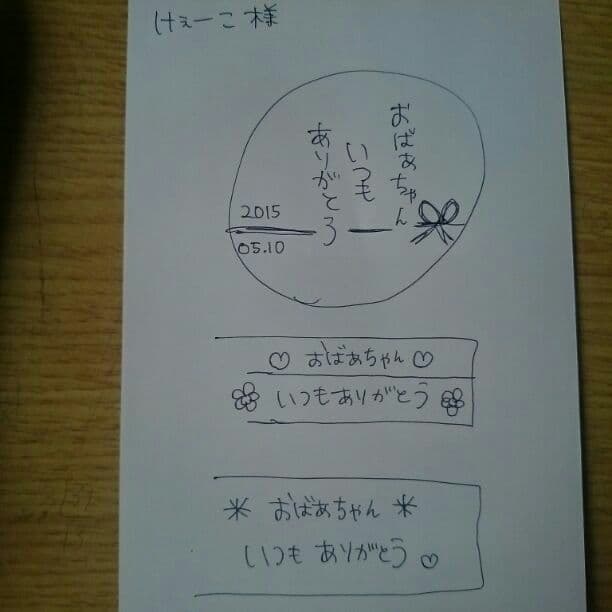 けぇーこ様
おばぁちゃん
いつも
ありがとう
2015
05.10
♡ おばぁちゃん ♡
いつもありがとう
* おばぁちゃん *
いつも ありがとう ♡